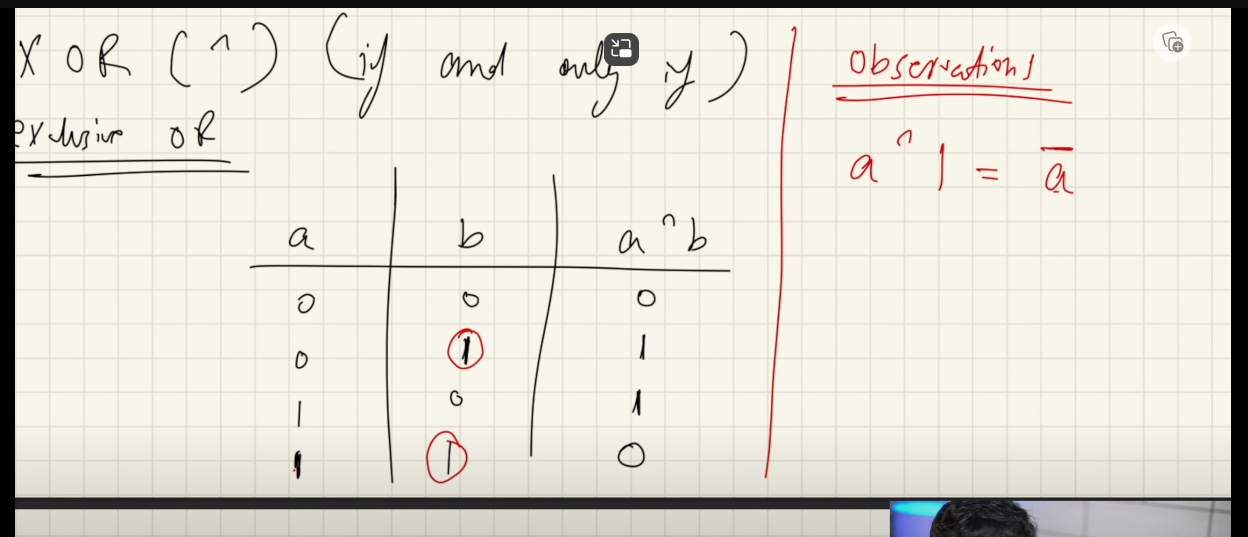 XOR (^) (if and only if)
exclusive OR
a b a^b
0 0 0
0 1 1
1 0 1
1 1 0
Observations
a ^ 1 = a̅